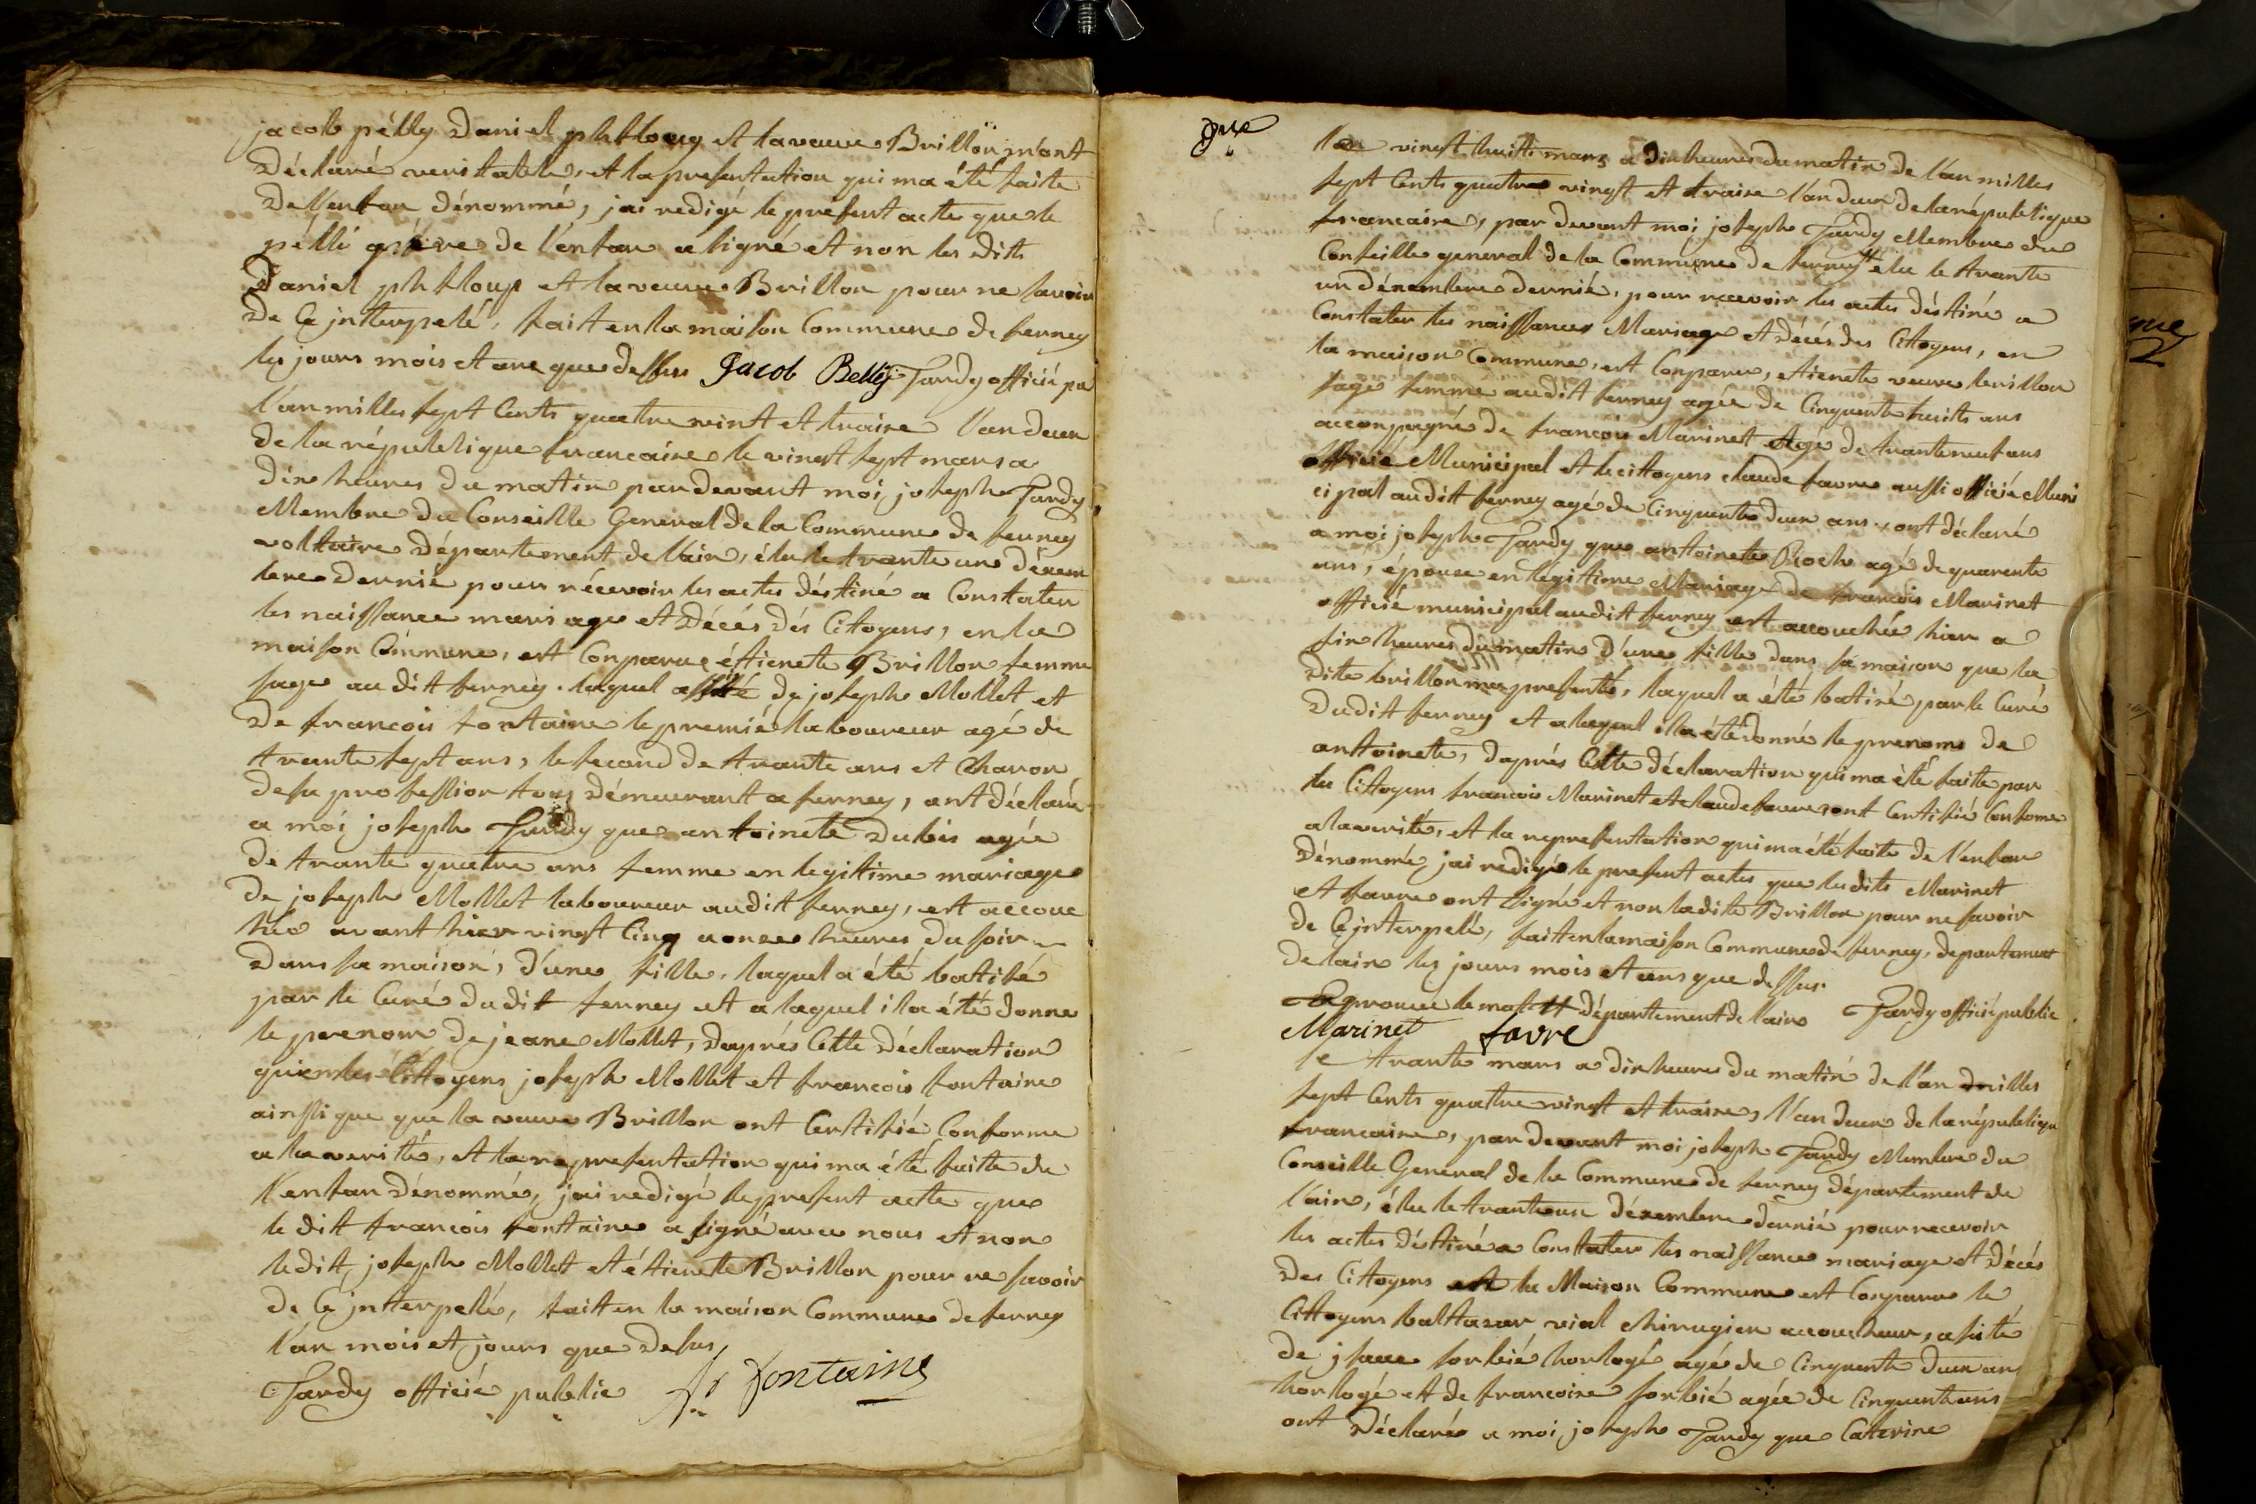 jacob pélly Daniel et la veuve Brillon m'ont
Déclaré veritable, et la presentation qui ma été faite
De l'enfan dénommé, jai redigé le present acte que le
pélli père de l'enfan a signé et non les dits
Daniel et la veuve Brillon pour ne savoir
De Ce jnterpelé, fait en la maison Commune de ferney
les jours mois et ans que dessus Jacob Belly Tardy officié
l'an milles sept Cents quatre vint et traize l'an deux
de la république francaise le vingt sept mars a
dix heures du matin par devant moi joseph Tardy
Membre du Conseille General de la Commune de ferney
voltaire Département de l'ain, élu le trante un dézem
bre dernié pour récevoir les actes déstiné a Constater
les naissance mariage et Décés dés Citoyens, en la
maison Cómmune, est Conparue étienete Brillon femme
sage au dit ferney. laquel assité de joseph Mollet et
De francois fontaine le premié laboureur agé de
trante sept ans, le second de trante ans et Charon
de sa profession tous démeurant a ferney, ont déclaré
a moi joseph Tardy que antoinete Dubis agée
de trante quatre ans femme en legitime mariage
De joseph Mollet laboureur audit ferney, est accouc
héé avant hier vingt Cinq a onze heures du soir
Dans sa maison, d'une fille, laquel a été batisé
par le Curé du dit ferney et a laquel il a été donne
le prenom de jeane Mollet, daprés Cette Déclaration
que les Cittoyens joseph Mollet et francois fontaine
ainsi que que la veuve Brillon ont Certifié Conforme
a la verité, et la representation qui ma été faite de
l'enfan Dénommé, jai redigé le present acte que
le dit francois fontaine a signé avec nous et non
le dit joseph Mollet et étienete Brillon pour ne savoir
de Ce jnterpelé, fait en la maison Commune de ferney
l'an mois et jours que desus
Tardy officié public fr fontaine
le vingt huiti mars a dix heures du matin de l'an milles
sept Cents quatre vingt et traize l'an deux de la république
francaise, par devant moi joseph Tardy Membre du
Conseille general de la Commune de ferney # élu le trante
un dézembre dernié, pour recevoir les actes déstiné a
Constater les naissances Mariage et Décés des Cittoyens, en
la maison Commune, est Conparue, etienete veuve brillon
sage femme audit ferney agée de Cinquante huits ans
acconpagné de francois Marinet agé de trante neuf ans
officié Municipal et le cittoyens claude favre aussi officié Muni
cipal audit ferney agé de Cinquante deux ans, ont déclaré
a moi joseph Tardy que antoinete Roch agé de quarente
ans, épouse en légitime Mariage de francois Marinet
officié municipal audit ferney est accouchée hier a
six heures du matin d'une fille dans sa maison que la
Dite brillon ma presenté, laquel a été batizé par le Curé
Du dit ferney et a laquel il a été donné le prenoms de
antoinete, daprés Cette déclaration qui ma été faite par
les Cittoyens francois Marinet et claude favre ont Certifié Conforme
a la verité, et la representation qui ma été faite de l'enfan
Dénommé, jai redigé le present actes que les dits Marinet
et favre ont signé et non la dite Brillon pour ne savoir
de Ce jnterpelé, fait en la maison Commune de ferney, departement
de lain les jours mois et ans que dessus.
# département de lain Tardy officié public
Marinet favre
le trante mars a dix heures du matin de l'an milles
sept Cents quatre vingt et traize, l'an deux de la république
francaise, par devant moi joseph Tardy Membre du
Conseille General de la Commune de ferney département de
l'ain, élu le trante un dézembre dernié pour recevoir
les actes déstiné a Constater les naissance mariage et Décés
des Cittoyens la Maison Commune est Conparu le
Cittoyens baltazar vial chirugien accoucheur, asité
de jsaac sorbié horlogé agé de Cinquente deux an
horlogé et de francoise sorbié agée de Cinquente ans
ont Déclaré a moi joseph Tardy que Caterine